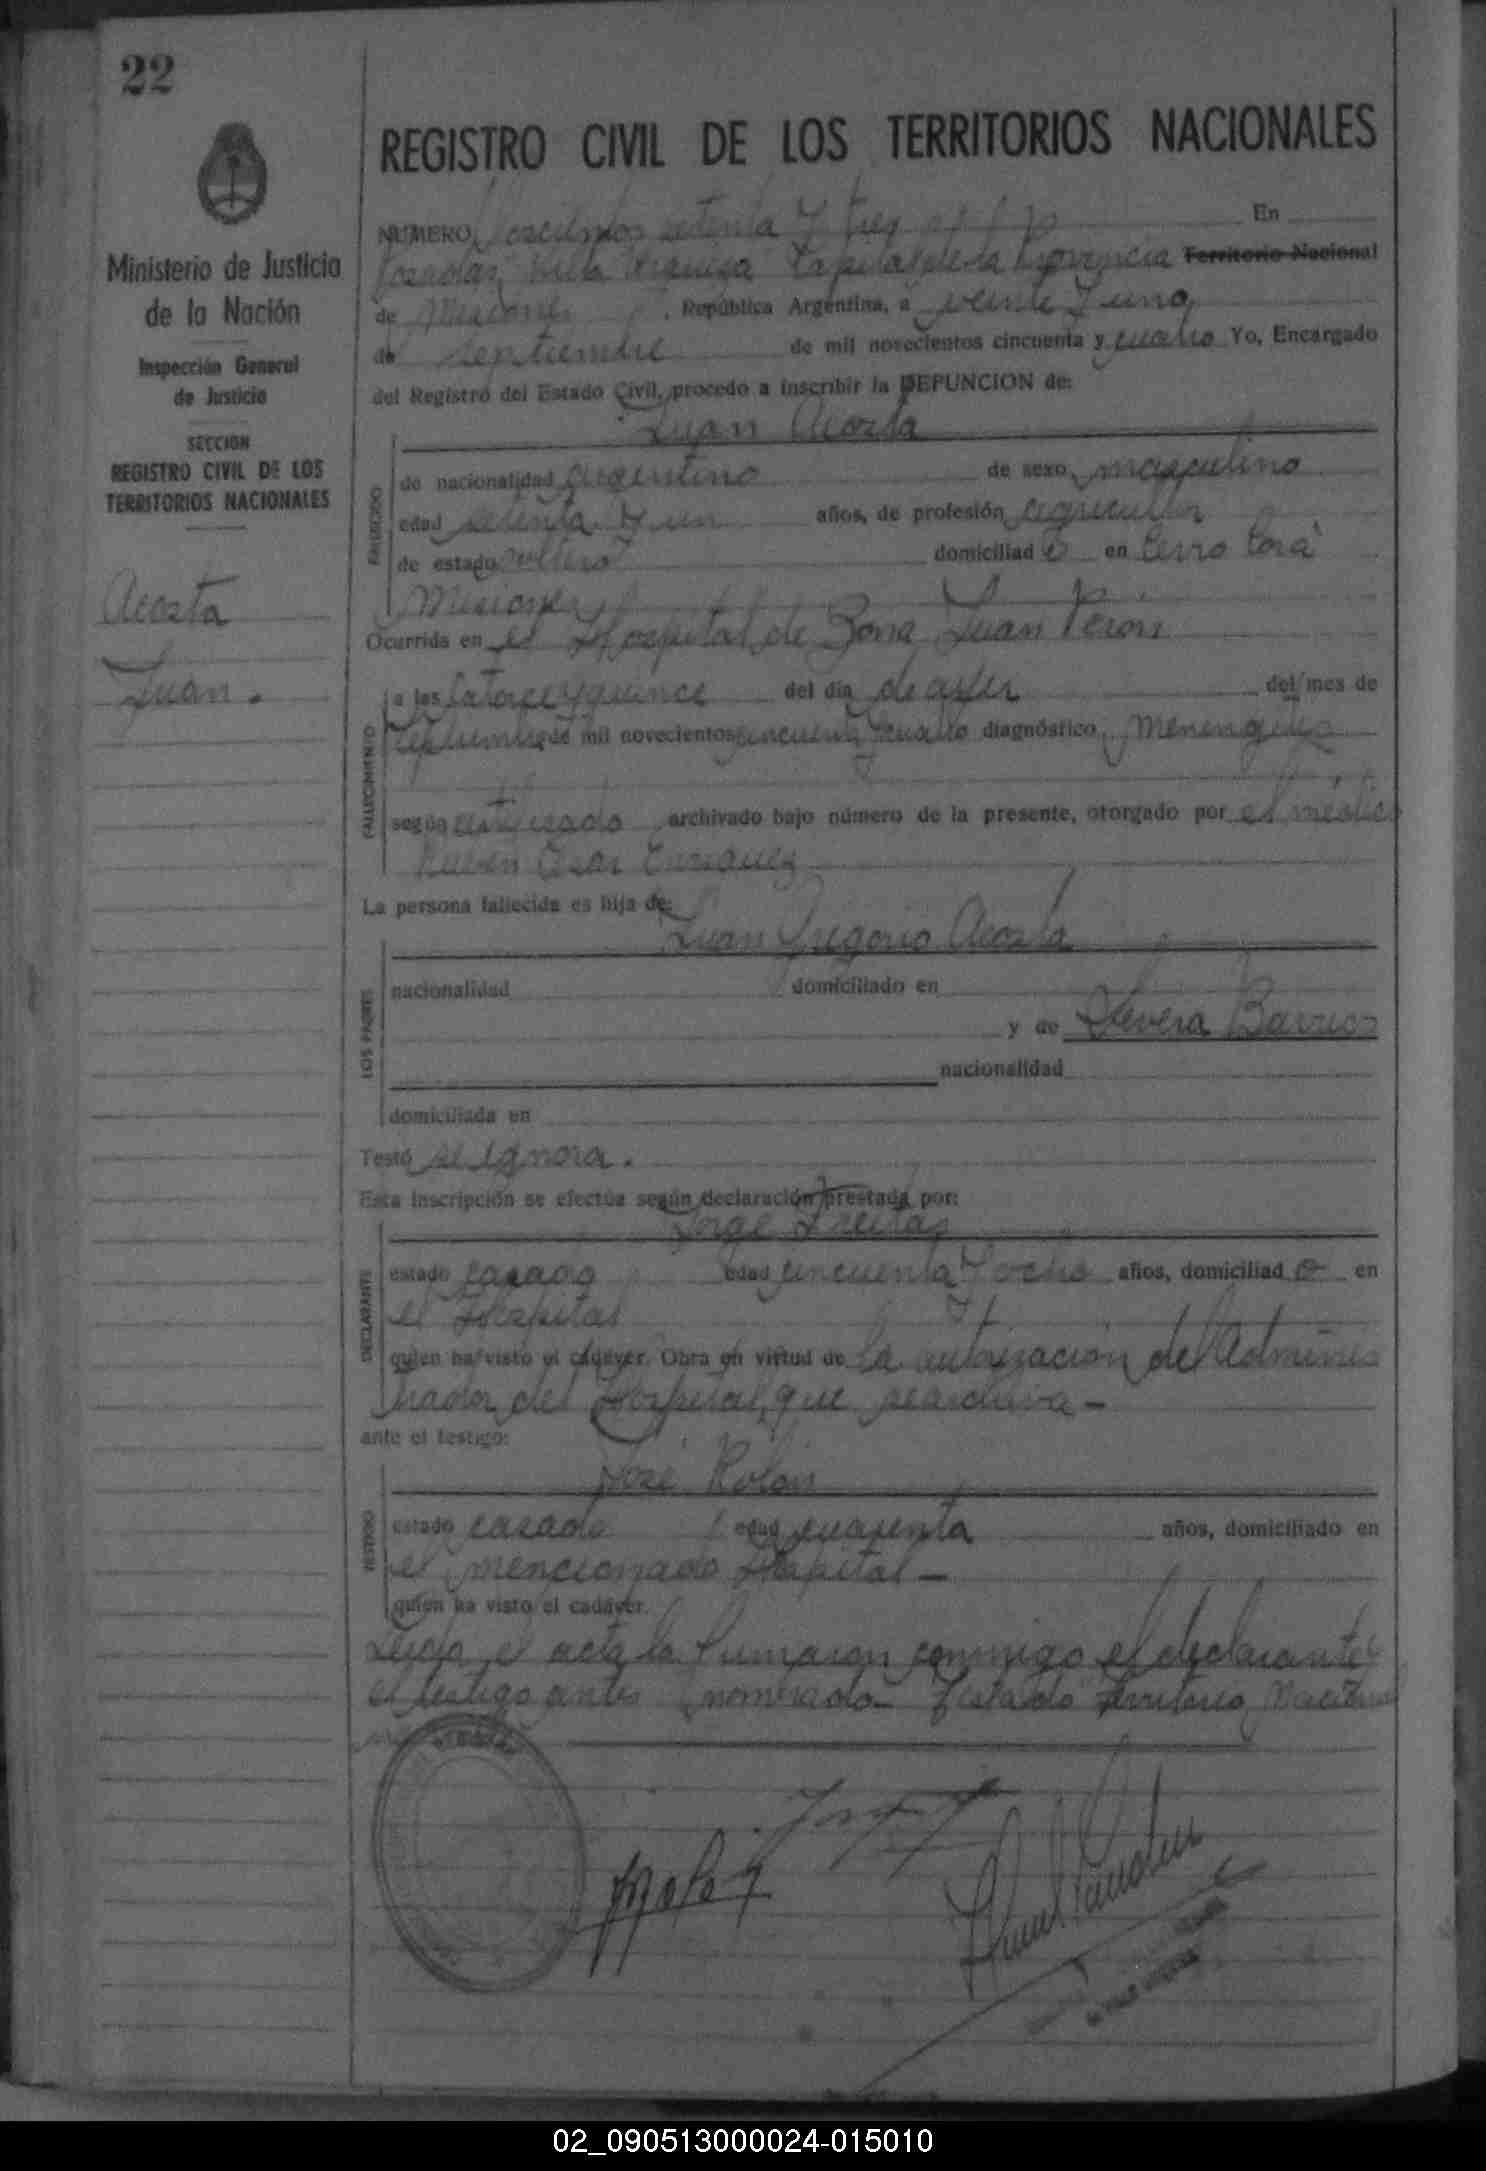 22
REGISTRO CIVIL DE LOS TERRITORIOS NACIONALES
Ministerio de Justicia
de la Nación
Inspección General
de Justicia
SECCION
REGISTRO CIVIL DE LOS
TERRITORIOS NACIONALES
Acosta
Juan.
NUMERO Doscientos setenta y tres En
Posadas, Villa Urquiza Capital de la Provincia Territorio Nacional
de Misiones, República Argentina, a veinte y uno
de septiembre de mil novecientos cincuenta y cuatro Yo, Encargado
del Registro del Estado Civil, procedo a inscribir la DEFUNCION de:
Juan Acosta
FALLECIDO
de nacionalidad argentino de sexo masculino
edad setenta y un años, de profesión agricultor
de estado soltero domiciliad o en Cerro Corá
Misiones
Ocurrida en el Hospital de Zona Juan Perón
FALLECIMIENTO
a las catorce y quince del día de ayer del mes de
septiembre de mil novecientos cincuenta y cuatro diagnóstico, Meningitis
según certificado archivado bajo número de la presente, otorgado por el médico
Ruben Cesar Enriquez
La persona fallecida es hija de:
Juan Gregorio Acosta
LOS PADRES
nacionalidad domiciliado en
y de Severa Barrios
nacionalidad
domiciliada en
Testó se ignora.
Esta inscripción se efectúa según declaración prestada por:
Jorge Freitas
DECLARANTE
estado casado edad cincuenta y ocho años, domiciliad o en
el Hospital
quien ha visto el cadáver. Obra en virtud de la autorización del Adminis
trador del Hospital, que se archiva-
ante el testigo:
José Rolón
TESTIGO
estado casado edad cuarenta años, domiciliado en
el mencionado Hospital-
quien ha visto el cadáver.
Leída el acta la firmaron conmigo el declarante y
el testigo antes nominado- Testado Territorio Nacional
02_090513000024-015010